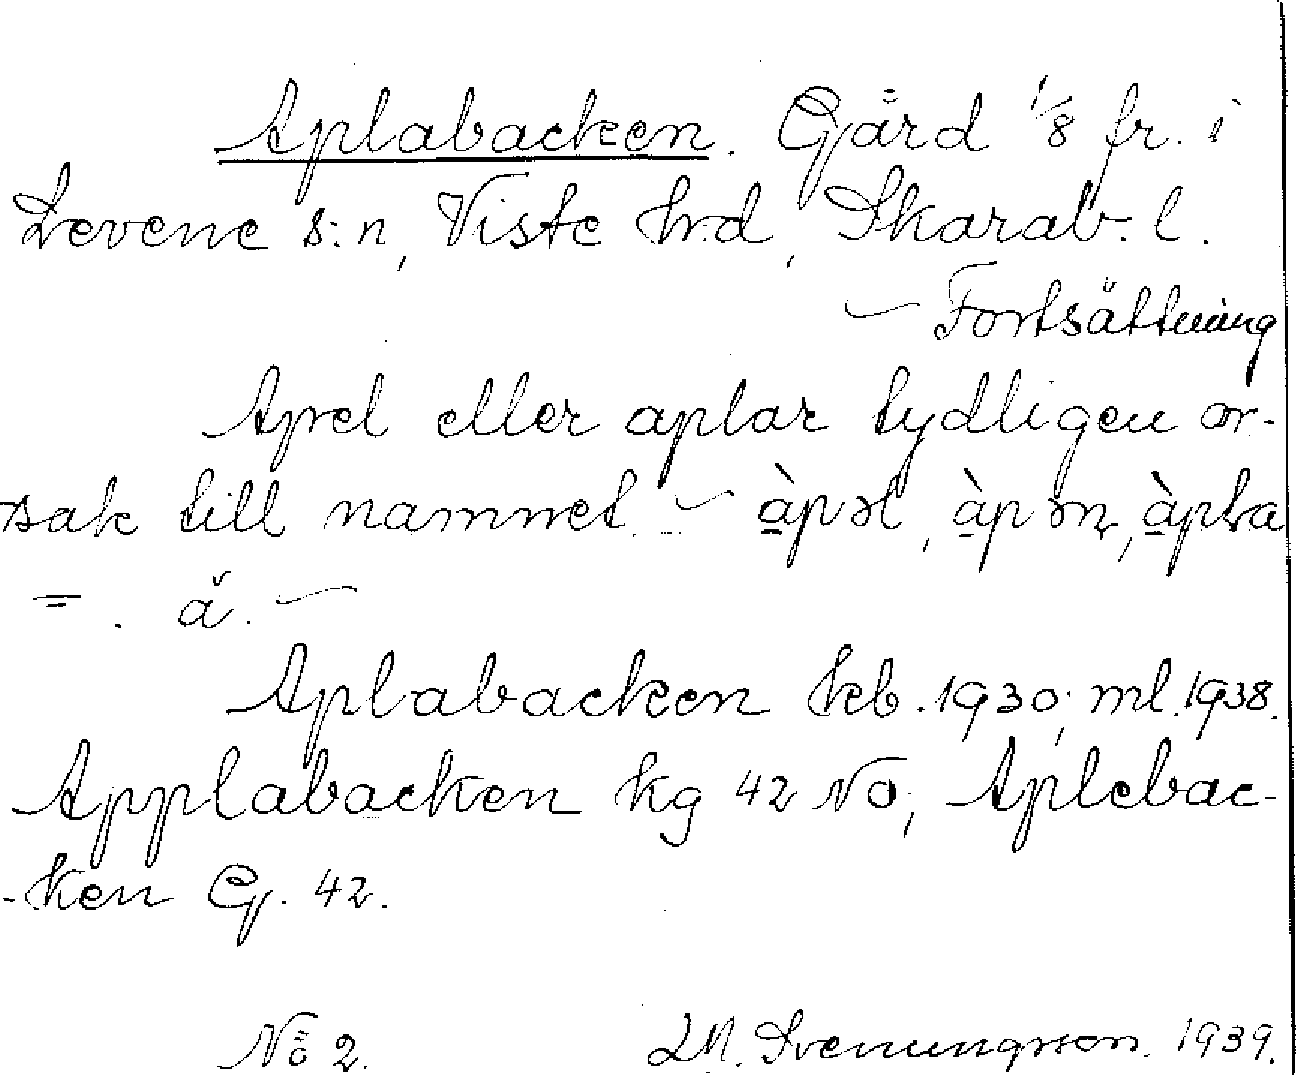 Aplabacken. Gård 1/8 fr. i
Levene s:n, Viste hrd, Skarab. l.
— Fortsättning
Apel eller aplar tydligen or-
sak till namnet. — àpəl, àpən, àpla
=. ä. —
Aplabacken kb. 1930; ml. 1938.
Applabacken kg 42 No; Aplebac-
-ken G. 42.
No 2. Svenungsson. 1939.